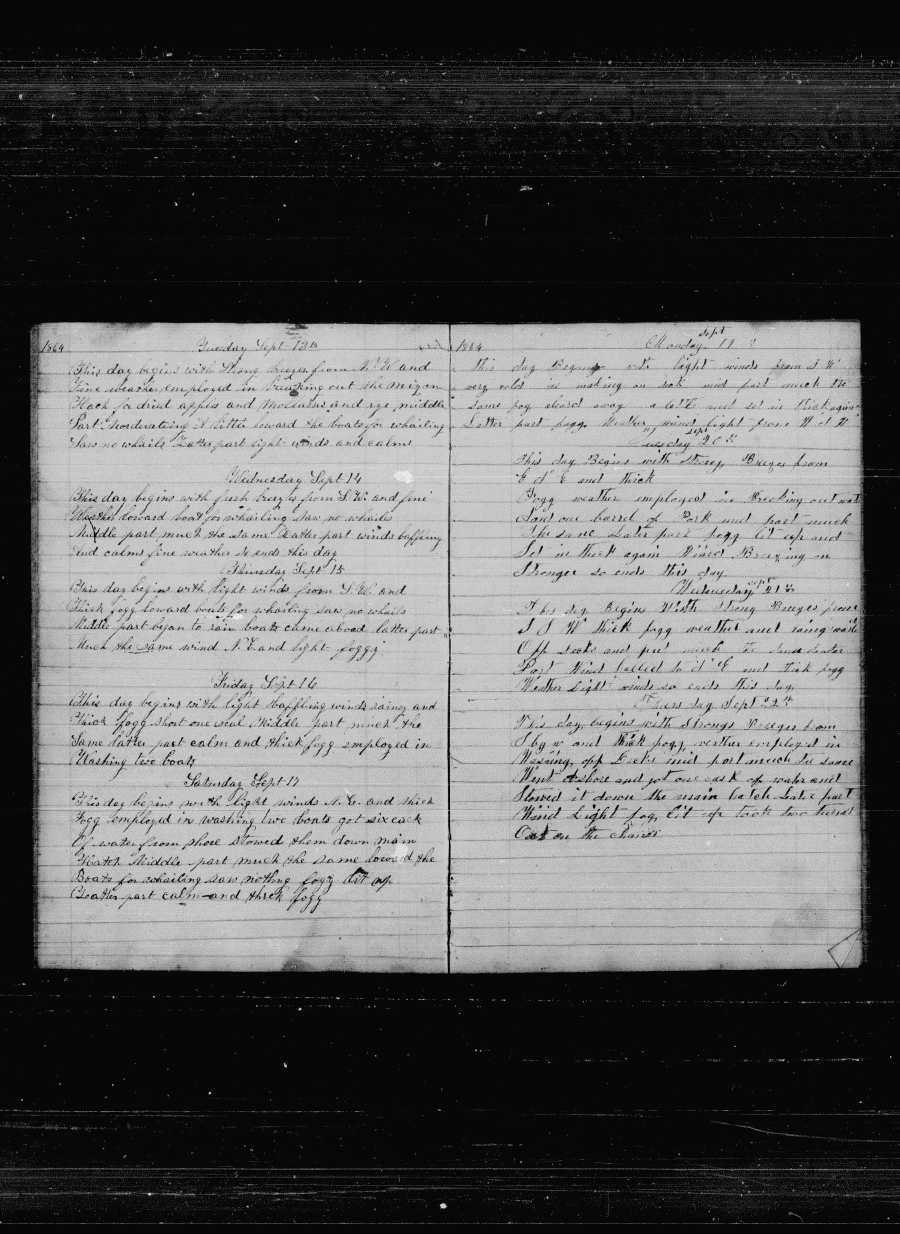 1864 Tuesday Sept 13th
This day begins with strong breezes from N. W. and
Fine weather employed in breaking out the mizen
Hach for dried apples and molasses and rye middle
Part moderating a little lowerd the boats for whailing
Saw no whails Latter part light winds and calms
Wednesday Sept 14
This day begins with fresh breezes from S. W. and fine
Weather lowerd boat for whailing saw no whailes
Middle part much the same Latter part winds baffling
And calms fine weather so ends this day
Thursday Sept 15
This day begins with light winds from S. W. and
Thick fogg lowerd boats for whailing saw no whails
Middle part began to rain boats came aboad latter part
Much the same wind N. E. and light foggy
Friday Sept 16
This day begins with light baffling winds rainey and
Thick fogg short one seal Middle part much the
Same latter part calm and thick fogg employed in
Washing two boats
Saturday Sept 17
This day begins with light winds N. E. and thick
Fogg employed in washing two boats got six cask
Of water from shore stowed them down main
Hatch Middle part much the same lowerd the
Boats for whailing saw nothing fogg lit up
Latter part calm and thick fogg
1864 Monday Sept 19
this day Begins with light winds from S W
very cold in making on part much the
Same fog cleard away a little and set in thick again
Latter part fogg Weather wind light from W
Tuesday Sept 20th
This day Begins with Strong Breezes from
E and thick
Fogg weather employed in Breking out
And one barrel of Pork mid part much
The same Later part fogg lit up and
Set in thick again Wind Breezing on
Stronger so ends this day
Wednesday Sept 21st
This day Begins With Strong Breezes from
S S W thick fogg weather and
Off Decks mid part much the same Later
Part Wind to E and thick fogg
Weather Light winds so ends this day
Thursday Sept 22nd
This day begins with Strongs Breezes from
S by W and thick fogg wether employed in
Wasing off Decks mid part much the same
Went ashore and got one cask of water and
Stowed it down the main hatch Later part
Wind Light fog lit up took two turns
Out on the chain